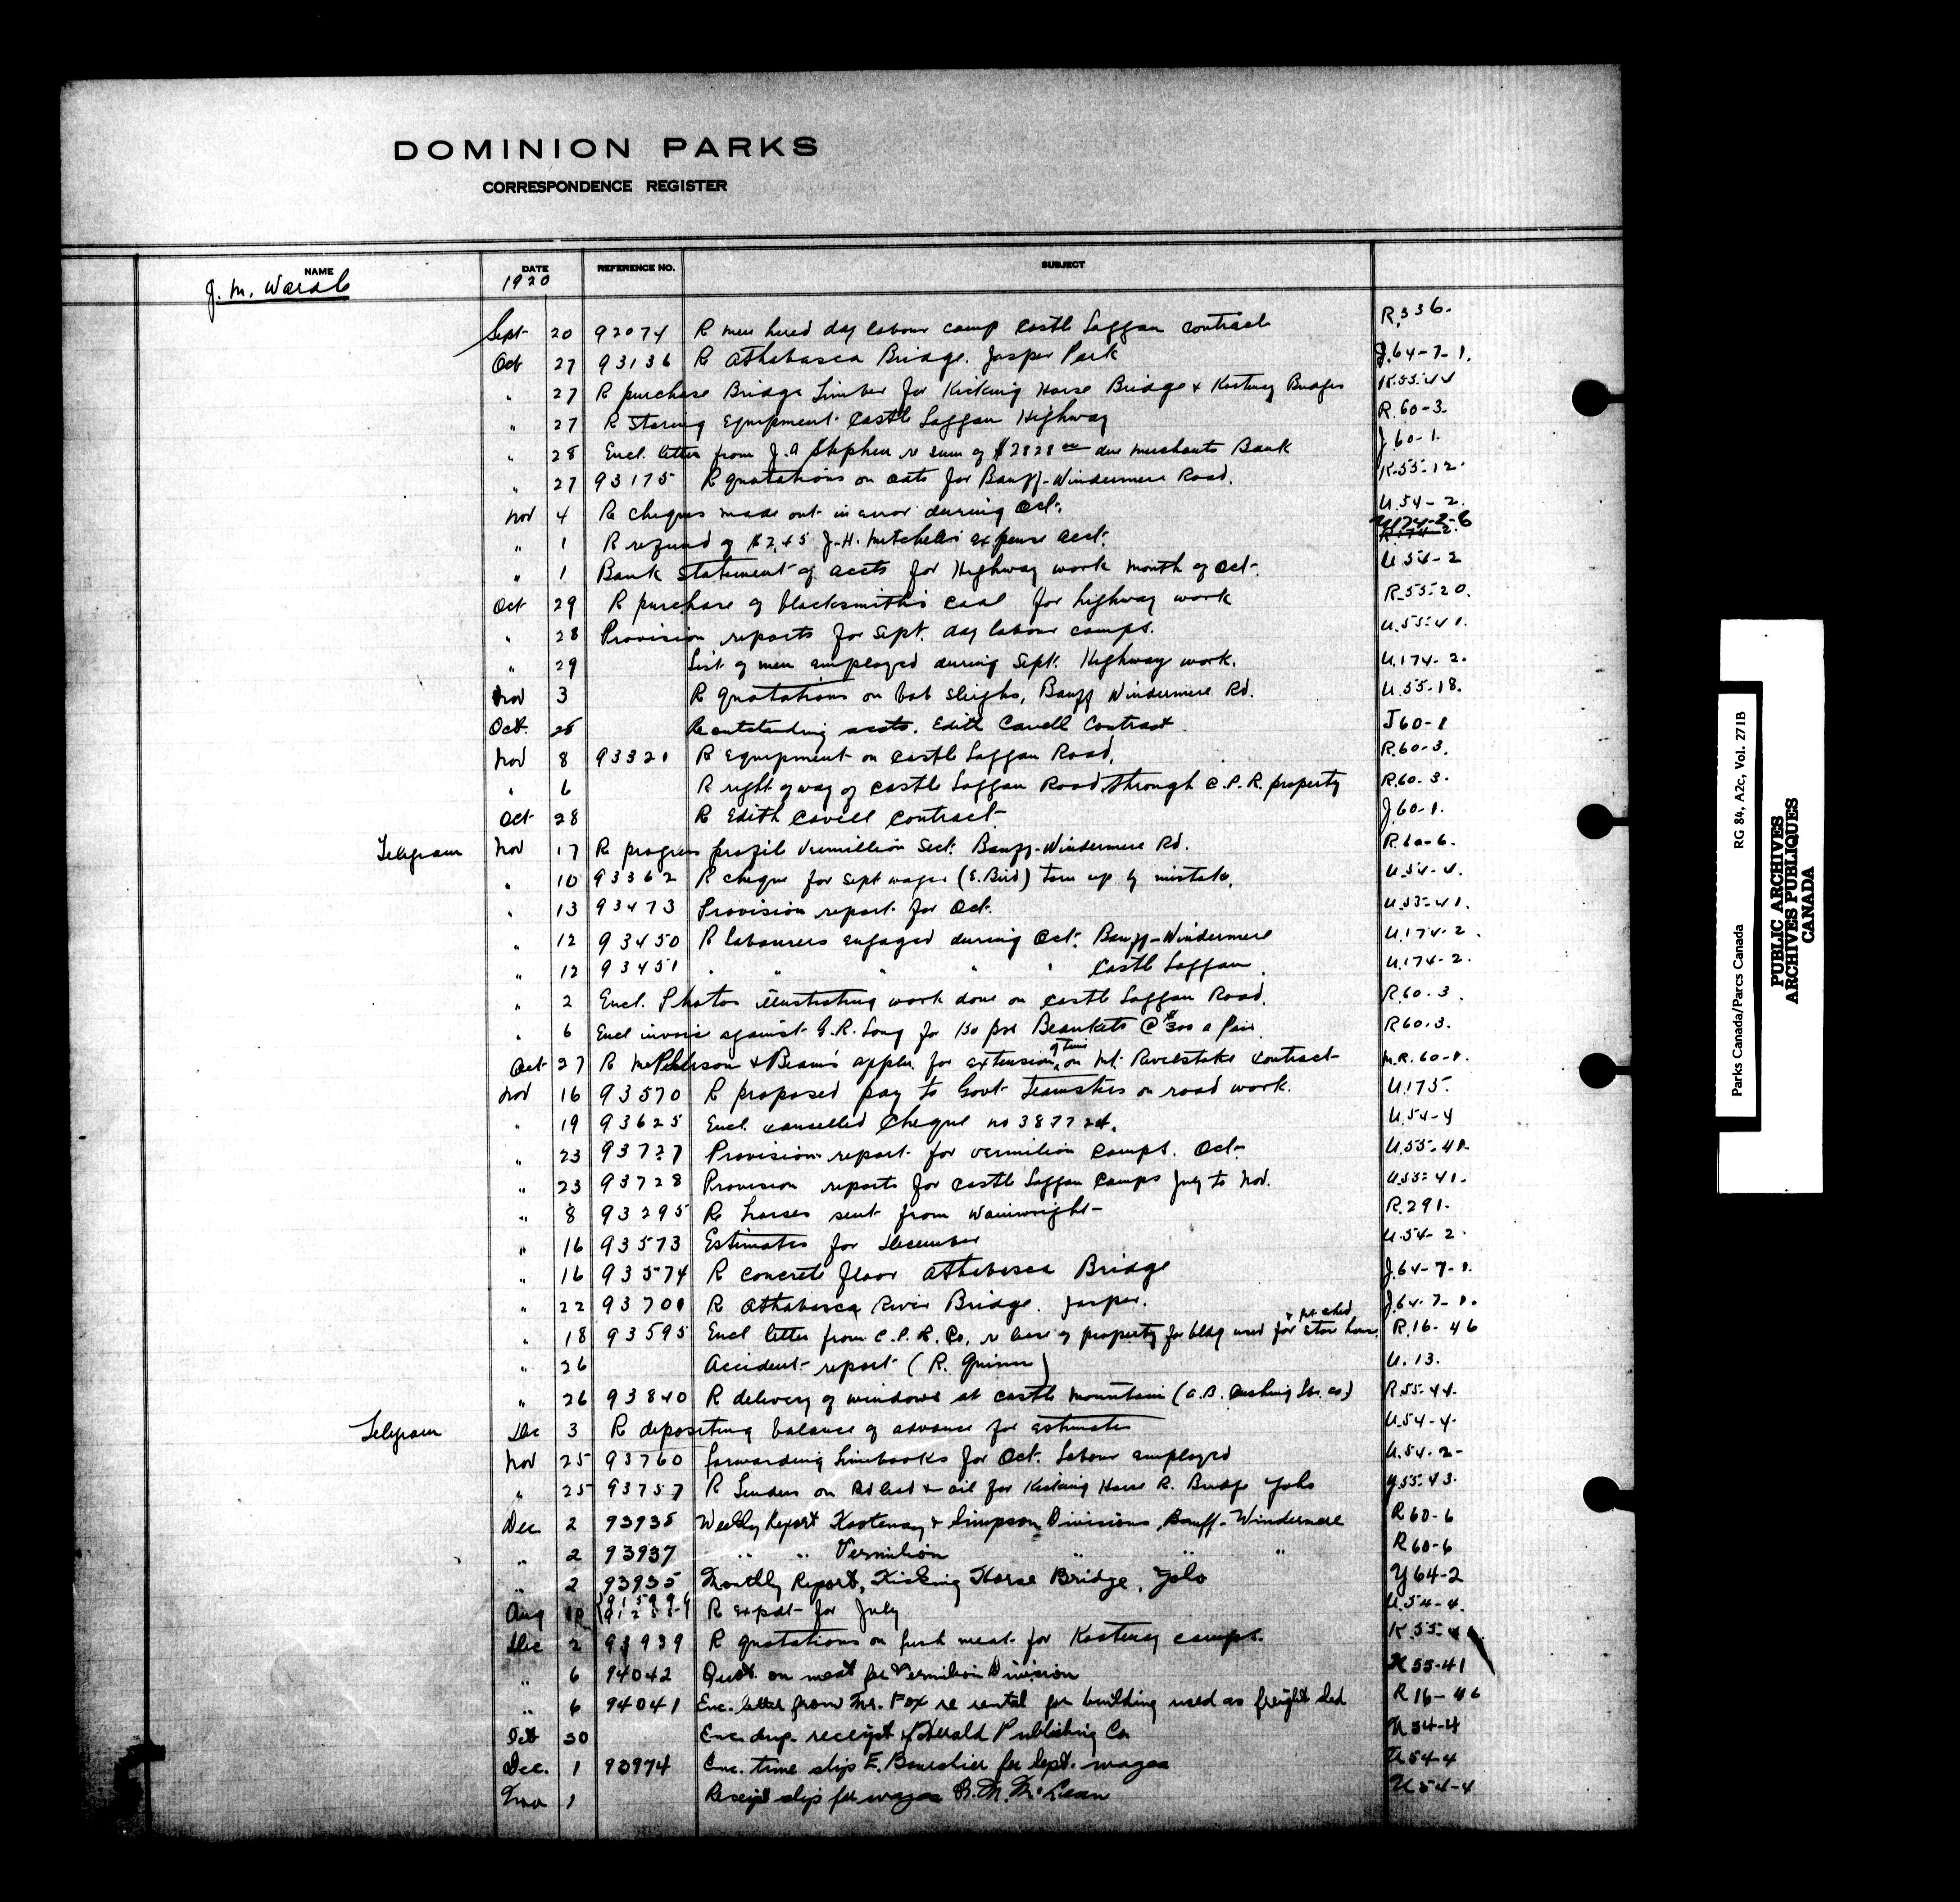 DOMINION PARKS
CORRESPONDENCE REGISTER
NAME DATE REFERENCE NO. SUBJECT
J. M. Wardle 1920
Sept 20 92074 R men hired day labour camp Castle Laggan contract R.336.
Oct 27 93136 R Athabasca Bridge. Jasper Park J.64-7-1.
" 27 R purchase Bridge Timber for Kicking Horse Bridge & Kootenay Bridges K.55-44
" 27 R Storing Equipment Castle Laggan Highway R.60-3.
" 28 Encl. letter from J. A Stephen re sum of $2828 00 due Merchants Bank J 60-1.
" 27 93175 R quotations on oats for Banff-Windermere Road. K.55-12.
Nov 4 R cheques made out in error during Oct. U.54-2.
" 1 R refund of $2.45 J-H. Mitchell's expense acct. U174-2-6
" 1 Bank Statement of accts for Highway work month of Oct. U.54-2
Oct 29 R purchase of blacksmith's coal for highway work R.55-20.
" 28 Provision reports for Sept. day labour camps. U.55-41.
" 29 List of men employed during Sept. Highway work. U.174-2.
Nov 3 R quotations on bob sleighs, Banff Windermere Rd. U.55-18.
Oct. 25 Re outstanding accts. Edith Cavell Contract J60-1
Nov 8 93321 R Equipment on Castle Laggan Road. R.60-3.
" 6 R right of way of Castle Laggan Road through C.P.R. property R.60-3.
Oct 28 R Edith Cavell Contract J.60-1.
Telegram Nov 17 R progress profile Vermillion Sect. Banff-Windermere Rd. R.60-6.
" 10 93362 R cheque for Sept wages (E. Bird) torn up by mistake. U.54-4.
" 13 93473 Provision report for Oct. U.55-41.
" 12 93450 R labourers engaged during Oct. Banff-Windermere U.174-2.
" 12 93451 " " " " " Castle Laggan. U.174-2.
" 2 Encl. Photos illustrating work done on Castle Laggan Road. R.60-3.
" 6 Encl invoice against G.R. Long for 150 prs Blankets @ $3.00 a Pair. R60.3.
Oct 27 R McPherson & Beam's appln. for extension of time on Mt. Revelstoke contract M.R. 60-1.
Nov 16 93570 R proposed pay to Govt Teamsters on road work. U.175.
" 19 93625 Encl. cancelled Cheque no 387724. U.54-4
" 23 93727 Provision report for Vermilion Camps. Oct. U.55-41.
" 23 93728 Provision reports for Castle Laggan Camps July to Nov. U.55-41.
" 8 93295 R horses sent from Wainwright R.291.
" 16 93573 Estimates for December U.54-2.
" 16 93574 R concrete floor Athabasca Bridge J.64-7-1.
" 22 93701 R Athabasca River Bridge. Jasper. J.64-7-1.
" 18 93595 Encl letter from C.P.R. Co. re lease of property for bldg used for store house R.16-46
" 26 Accident report (R. Quinn) U.13.
" 26 93840 R delivery of windows at Castle Mountain (A.B. Cushing Lbr. Co.) R.55-44.
Telegram Dec 3 R depositing balance of advance for estimates U.54-4.
Nov 25 93760 forwarding Timebooks for Oct. Labour employed U.54-2-
" 25 93757 R Tenders on Red lead & oil for Kicking Horse R. Bridge Yoho Y.55-43.
Dec 2 93935 Weekly Report Kootenay & Simpson Divisions, Banff-Windermere R 60-6
" 2 93937 " " Vermilion " " " R 60-6
" 2 93935 Monthly Report, Kicking Horse Bridge, Yoho Y 64-2
Aug R expdt for July U.54-4.
Dec 2 93939 R quotations on fresh meat for Kootenay camps.
" 6 94042 Quot. on meat for Vermilion Division K 55-41
" 6 94041 Enc. letter from Mr. Fox re rental for building used as freight shed R 16-46
Oct 30 Enc. dup. receipt of Herald Publishing Co. U 54-4
Dec. 1 93974 Enc. time slip E. Bourchier for Sept. wages U 54-4
Nov 1 Receipt slip for wages McLean U 54-4
Parks Canada/Parcs Canada RG 84, A2c, Vol. 271B
PUBLIC ARCHIVES
ARCHIVES PUBLIQUES
CANADA